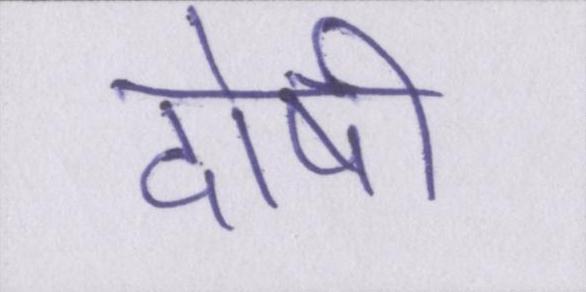 दोषी